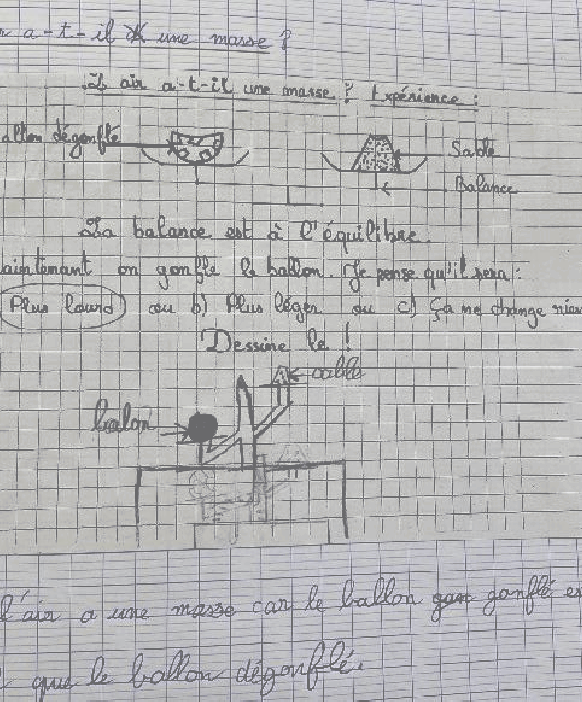 a-t-il une masse ?
L'air a-t-il une masse ? Expérience :
allon dégonflé
Sable
Balance
La balance est à l'équilibre.
aintenant on gonfle le ballon. Je pense qu'il sera :
Plus lourd ou b) Plus léger ou c) Ça ne change rien
Dessine le !
sable
balon
l'air a une masse car le ballon gonflé es
que le ballon dégonflé.